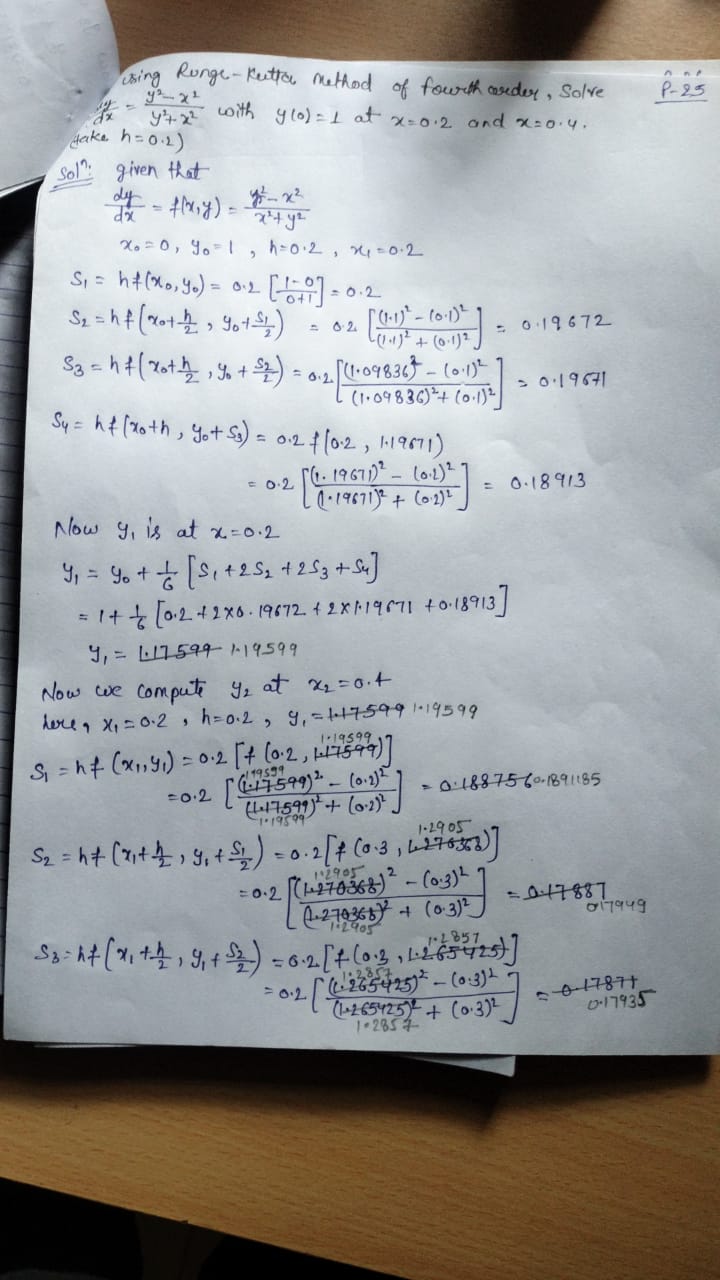 using Runge-Kutta method of fourth order, Solve P-25
dy/dx = (y²-x²)/(y²+x²) with y(0)=1 at x=0.2 and x=0.4.
(take h=0.2)
Solⁿ: given that
dy/dx = f(x,y) = (y²-x²)/(x²+y²)
x₀=0, y₀=1, h=0.2, x₁=0.2
S₁ = hf(x₀,y₀) = 0.2 [(1-0)/(0+1)] = 0.2
S₂ = hf(x₀+h/2, y₀+S₁/2) = 0.2 [((1.1)²-(0.1)²)/((1.1)²+(0.1)²)] = 0.19672
S₃ = hf(x₀+h/2, y₀+S₂/2) = 0.2 [((1.09836)²-(0.1)²)/((1.09836)²+(0.1)²)] = 0.19671
S₄ = hf(x₀+h, y₀+S₃) = 0.2 f(0.2, 1.19671)
= 0.2 [((1.19671)²-(0.2)²)/((1.19671)²+(0.2)²)] = 0.18913
Now y₁ is at x=0.2
y₁ = y₀ + 1/6 [S₁+2S₂+2S₃+S₄]
= 1 + 1/6 [0.2+2×0.19672+2×1.19671+0.18913]
y₁ = 1.17599 1.19599
Now we compute y₂ at x₂=0.4
here, x₁=0.2, h=0.2, y₁=1.17599 1.19599
S₁ = hf(x₁,y₁) = 0.2 [f(0.2, 1.17599 1.19599)]
= 0.2 [((1.17599 1.19599)²-(0.2)²)/((1.17599 1.19599)²+(0.2)²)] = 0.188756 0.1891185
S₂ = hf(x₁+h/2, y₁+S₁/2) = 0.2 [f(0.3, 1.270368 1.2905)]
= 0.2 [((1.270368 1.2905)²-(0.3)²)/((1.270368 1.2905)²+(0.3)²)] = 0.17887 0.17949
S₃ = hf(x₁+h/2, y₁+S₂/2) = 0.2 [f(0.3, 1.265425 1.2857)]
= 0.2 [((1.265425 1.2857)²-(0.3)²)/((1.265425 1.2857)²+(0.3)²)] = 0.17871 0.17935